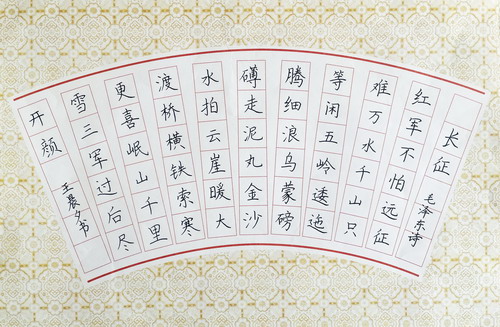 长征 毛泽东诗
红军不怕远征
难万水千山只
等闲五岭逶迤
腾细浪乌蒙磅
礴走泥丸金沙
水拍云崖暖大
渡桥横铁索寒
更喜岷山千里
雪三军过后尽
开颜 王晨夕书